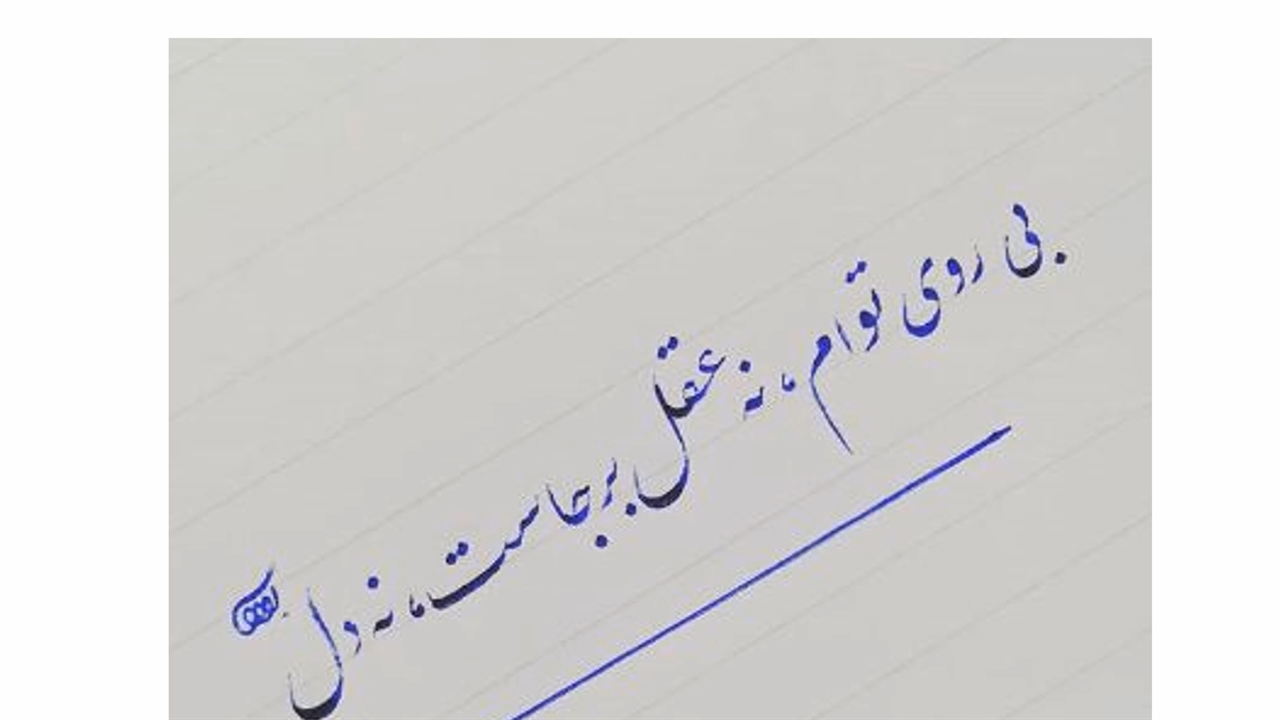 بی روی توام، نه عقل برجاست، نه دل